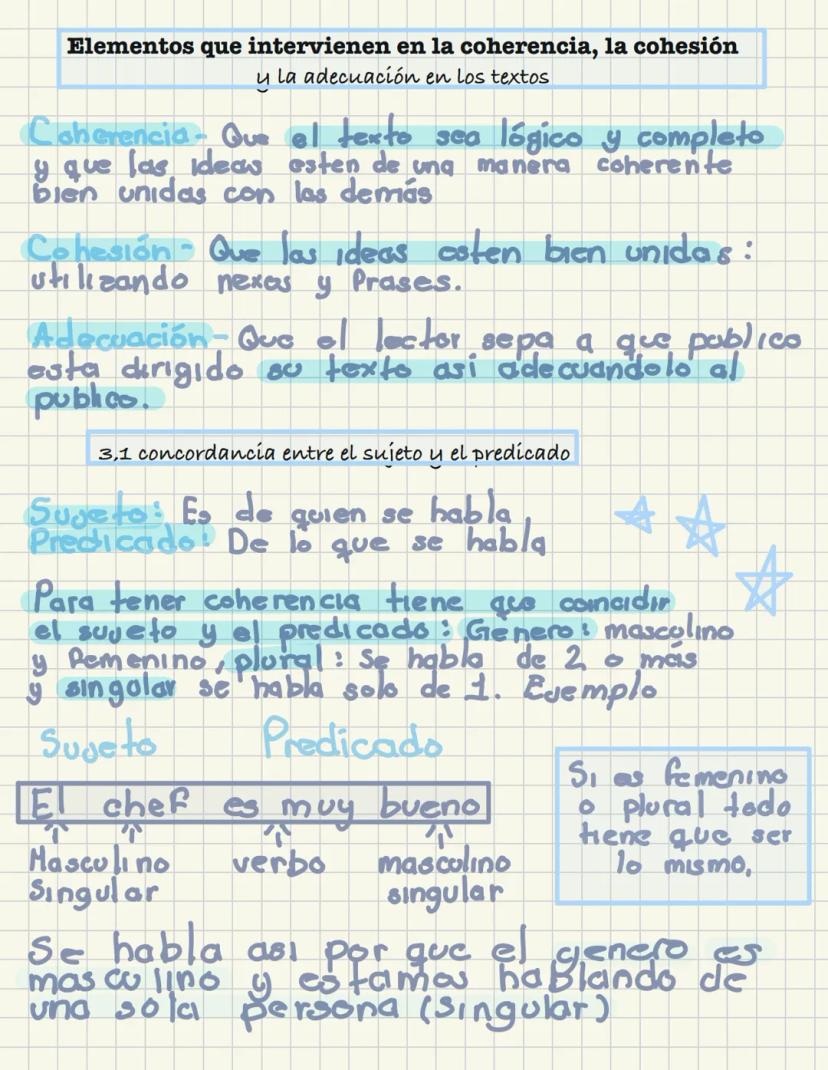 Elementos que intervienen en la coherencia, la cohesión
y la adecuación en los textos
Coherencia- Que el texto sea lógico y completo
y que las ideas esten de una manera coherente
bien unidas con las demás
Cohesión- Que las ideas esten bien unidas:
utilizando nexos y frases.
Adecuación- Que el lector sepa a que publico
esta dirigido su texto asi adecuandolo al
publico.
3,1 concordancia entre el sujeto y el predicado
Sujeto: Es de quien se habla
Predicado: De lo que se habla
Para tener coherencia tiene que coincidir
el sujeto y el predicado: Genero: masculino
y femenino, plural: Se habla de 2 o más
y singular se habla solo de 1. Ejemplo
Sujeto Predicado
El chef es muy bueno
Masculino verbo masculino
Singular singular
Si es femenino
o plural todo
tiene que ser
lo mismo,
Se habla asi por que el genero es
masculino y estamos hablando de
una sola persona (singular)